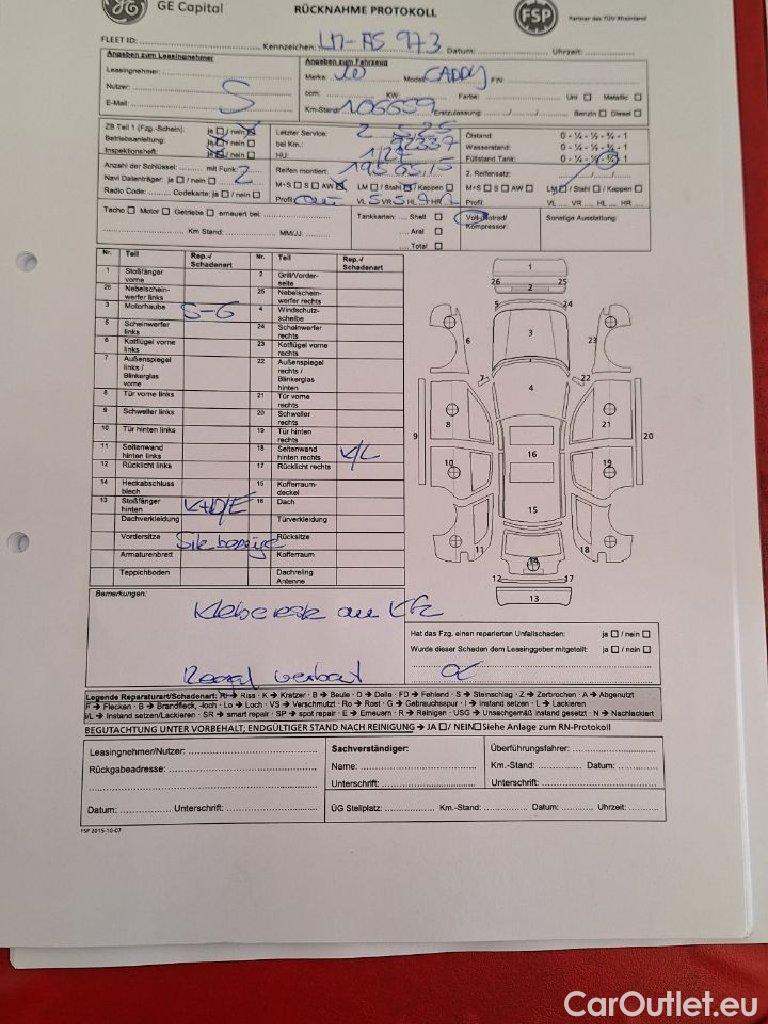 GE Capital
RÜCKNAHME PROTOKOLL
FSP
Partner des TÜV Rheinland
FLEET ID: Kennzeichen: LM-AS 973 Datum: Uhrzeit:
Angaben zum Leasingnehmer
Angaben zum Fahrzeug
Leasingnehmer:
Marke Modell: CADDY FIN:
Nutzer:
ccm: KW: Farbe: Uni Metallic
E-Mail:
Km-Stand: 106659 Erstzulassung: Benzin Diesel
ZB Teil 1 (Fzg.-Schein): ja / nein
Letzter Service:
Ölstand: 0 - ¼ - ½ - ¾ - 1
Betriebsanleitung: ja / nein
bei Km.: 92337
Wasserstand: 0 - ¼ - ½ - ¾ - 1
Inspektionsheft: ja / nein
HU:
Füllstand Tank: 0 - ¼ - ½ - ¾ - 1
Anzahl der Schlüssel: mit Funk: 2
Reifen montiert: 195 65 15
2. Reifensatz:
Navi Datenträger: ja / nein
M+S S AW LM / Stahl / Kappen
M+S S AW LM / Stahl / Kappen
Radio Code: Codekarte: ja / nein
Profil: VL 5 VR 5 HL HR
Profil: VL VR HL HR
Tacho Motor Getriebe erneuert bei:
Tankkarten: Shell
Voll-/Notrad/
Kompressor:
Sonstige Ausstattung:
Km Stand: MM/JJ:
Aral
Total
Nr. Teil Rep.-/ Schadenart: Nr. Teil Rep.-/ Schadenart
1 Stoßfänger vorne 2 Grill/Vorder-seite
26 Nebelschein-werfer links 25 Nebelschein-werfer rechts
3 Motorhaube S-G 4 Windschutz-scheibe
5 Scheinwerfer links 24 Scheinwerfer rechts
6 Kotflügel vorne links 23 Kotflügel vorne rechts
7 Außenspiegel links / Blinkerglas vorne 22 Außenspiegel rechts / Blinkerglas hinten
8 Tür vorne links 21 Tür vorne rechts
9 Schweller links 20 Schweller rechts
10 Tür hinten links 19 Tür hinten rechts
11 Seitenwand hinten links 18 Seitenwand hinten rechts K/L
12 Rücklicht links 17 Rücklicht rechts
14 Heckabschluss blech 15 Kofferraum-deckel
13 Stoßfänger hinten K+D/E 16 Dach
Dachverkleidung Türverkleidung
Vordersitze Rücksitze
Armaturenbrett Kofferraum
Teppichboden Dachreling Antenne
1
26 25
2
5 24
3
6 23
7 22
4
8 21
9 20
16
10 19
15
11 18
14
12 17
13
Bemerkungen:
Kleberreste am Kfz
Regal verbaut
Hat das Fzg. einen reparierten Unfallschaden: ja / nein
Wurde dieser Schaden dem Leasinggeber mitgeteilt: ja / nein
Legende Reparaturart/Schadenart: RI → Riss · K → Kratzer · B → Beule · D → Delle · FD → Fehlend · S → Steinschlag · Z → Zerbrochen · A → Abgenutzt
F → Flecken · B → Brandfleck, -loch · Lo → Loch · VS → Verschmutzt · Ro → Rost · G → Gebrauchsspur · I → Instand setzen · L → Lackieren
I/L → Instand setzen/Lackieren · SR → smart repair · SP → spot repair · E → Erneuern · R → Reinigen · USG → Unsachgemäß Instand gesetzt · N → Nachlackiert
BEGUTACHTUNG UNTER VORBEHALT; ENDGÜLTIGER STAND NACH REINIGUNG → JA / NEIN Siehe Anlage zum RN-Protokoll
Leasingnehmer/Nutzer:
Sachverständiger:
Überführungsfahrer:
Rückgabeadresse:
Name:
Km.-Stand: Datum:
Unterschrift:
Unterschrift:
Datum: Unterschrift:
ÜG Stellplatz: Km.-Stand: Datum: Uhrzeit:
FSP 2015-10-07
CarOutlet.eu